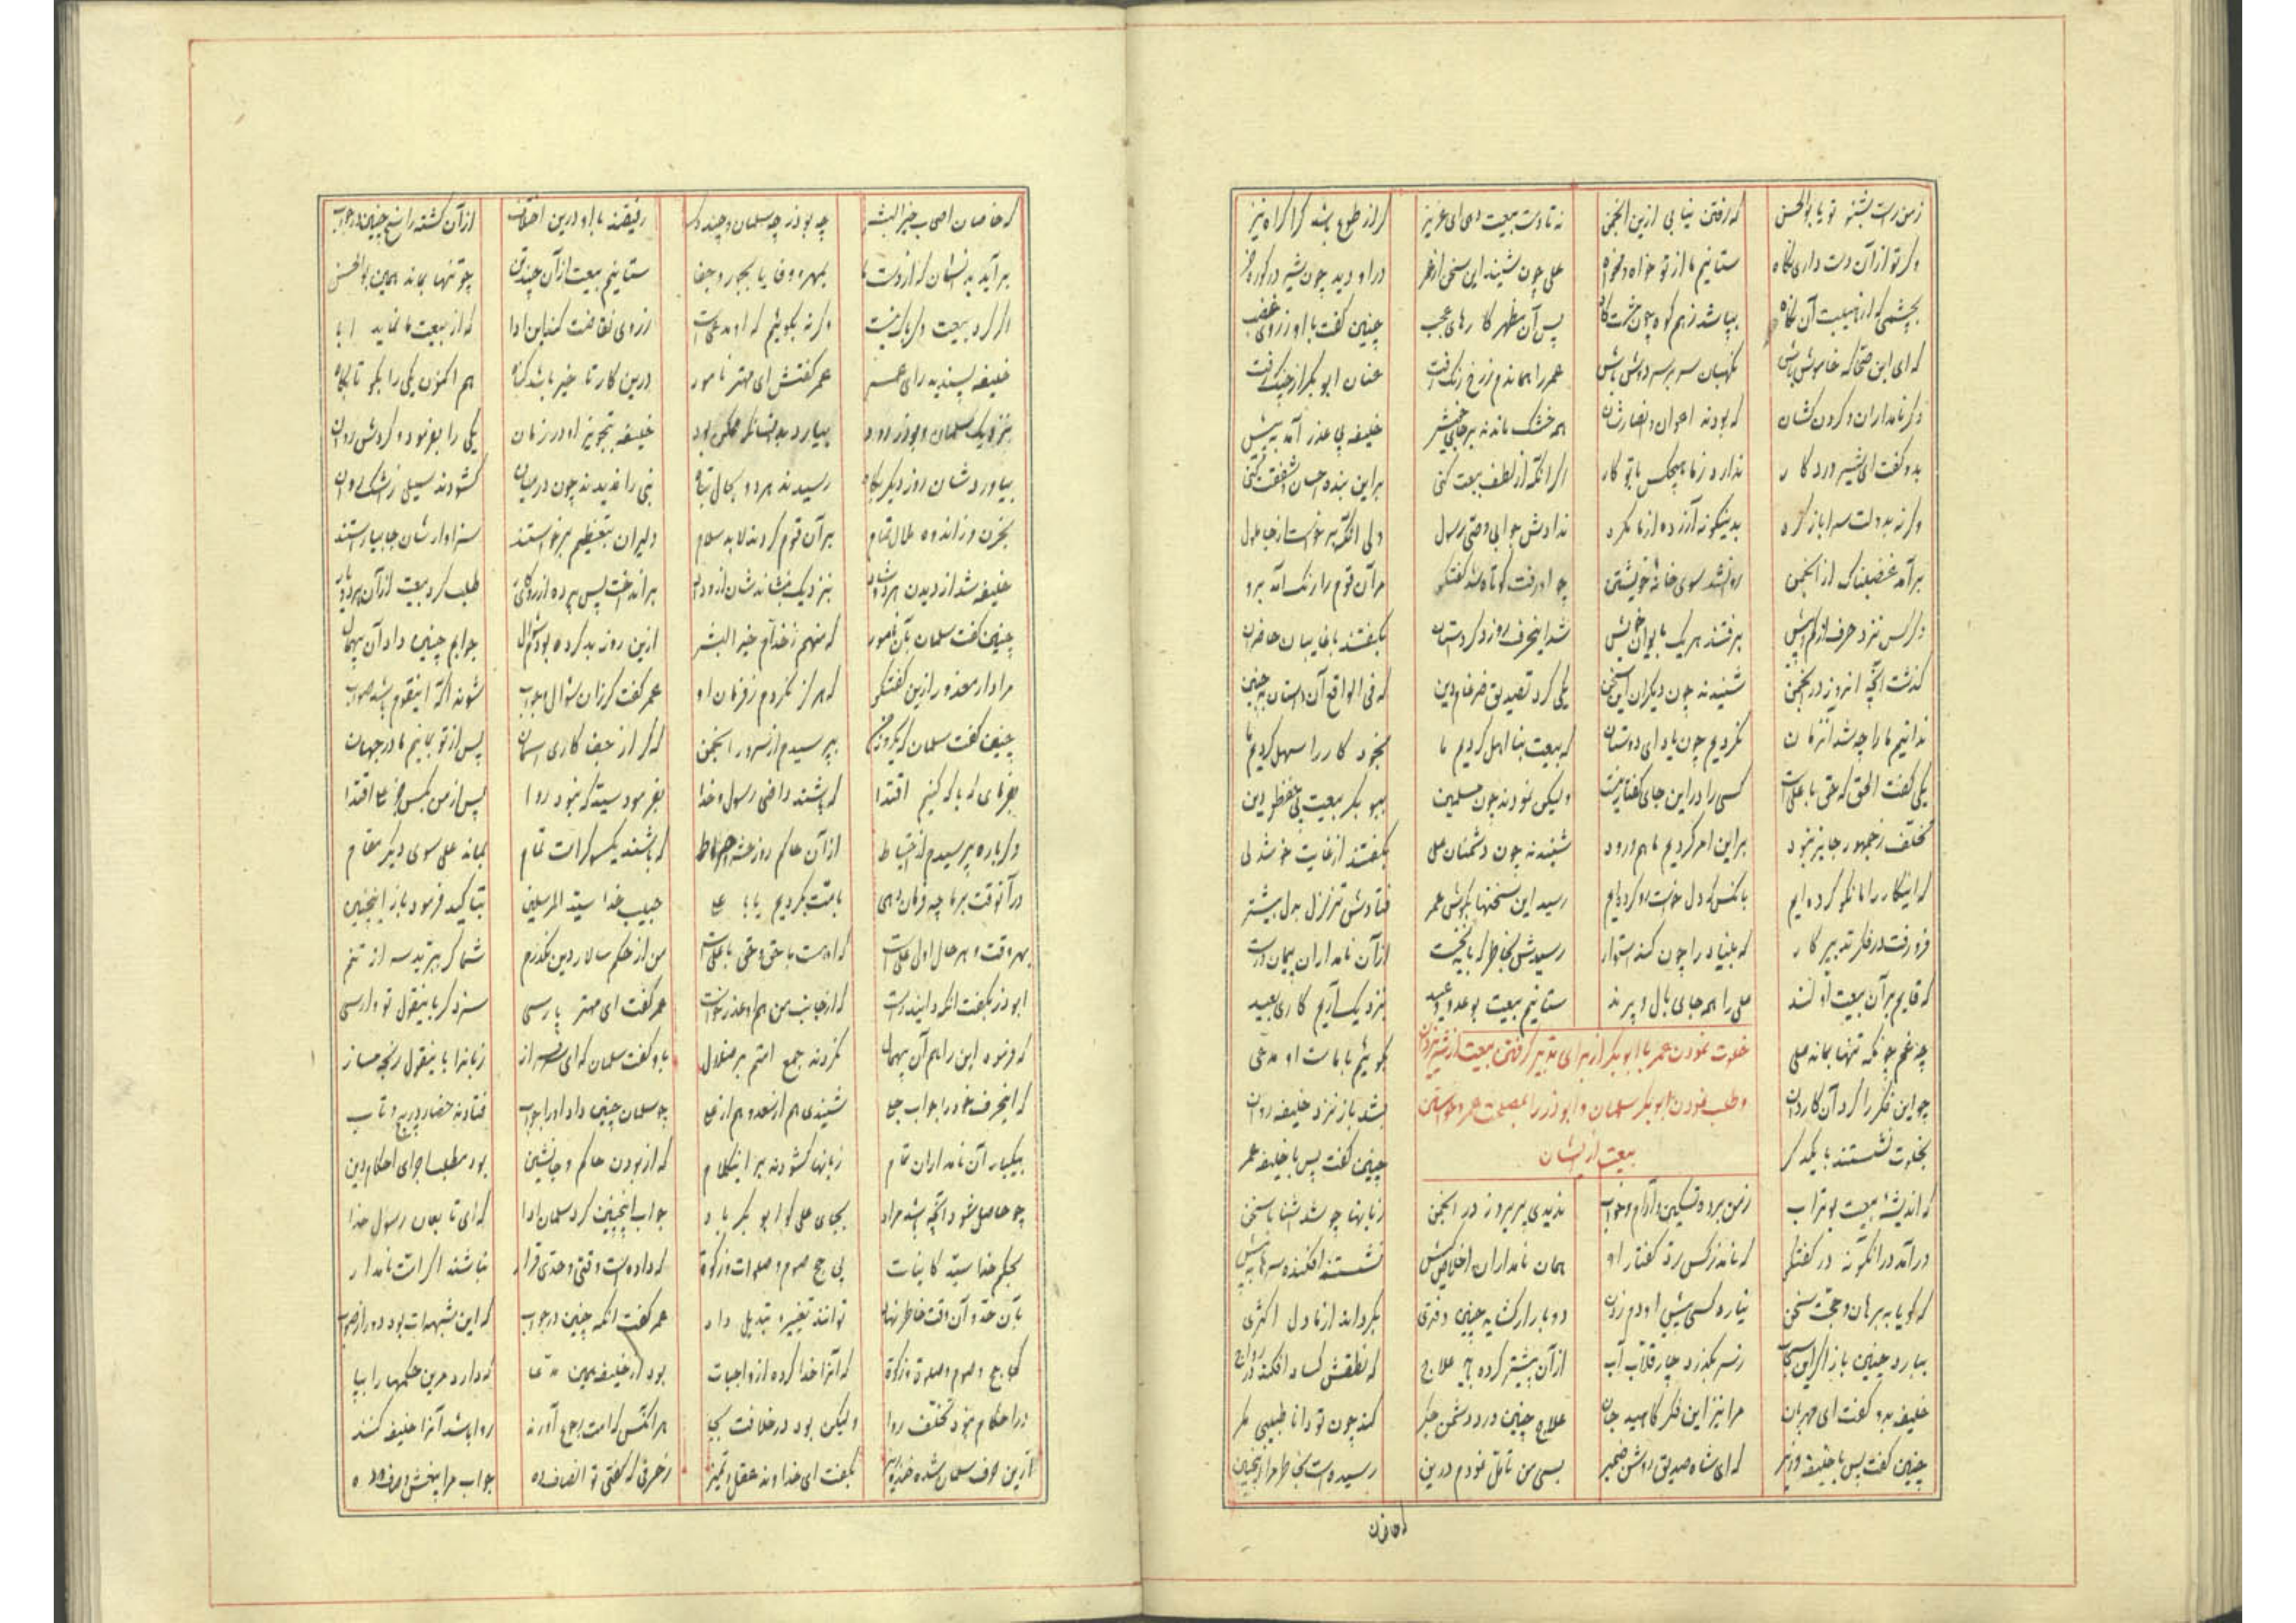 زمن راست بشنو تو یا بوالحسن که رفتن نیابی ازین انجمن نه تا دست بیعت دهی ای عزیز گر از طوع باشد گر اکراه نیز
وگر تو از آن دست داری نگاه ستانیم ما از تو خواه و نخواه علی چون شنید این سخن از عمر در او دید چون شیر در گور و خر
بچشمی که از هیبت آن نگاه بپاشد ز هم کوه چون مشت کاه پس آن مظهر کارهای عجب چنین گفت با او ز روی غضب
که ای ابن ضحاک خاموش باش نگهبان سر بر سر دوش باش عمر را بماند دم ز رخ رنگ رفت عنان ابوبکر از چنگ رفت
دگر نامداران و گردن کشان که بودند اعوان و انصارشان همه خشک ماندند بر جای خویش خلیفه پی عذر آمد به پیش
بدو گفت ای شیر درد کار ندارد ز ما هیچکس با تو کار اگر آنکه از لطف بیعت کنی بر این بنده احسان و شفقت کنی
وگرنه بدولت سرا باز گرد بدینگونه آزرده از ما مگرد ندادش جوابی وصی رسول ولی آنکه برخواست از جا ملول
برآمد غضبناک از انجمن روان شد سوی خانه خویشتن چو او رفت کوتاه شد گفتگو مر آن قوم را رنگ آمد برو
دگر کس نزد حرف از کم و بیش برفتند هر یک بایوان خویش شد این حرف روز دگر داستان بگفتند با غایبان حاضران
گذشت آنچه آنروز در انجمن شنیدند چون دیگران این سخن یکی کرد تصدیق ضرغام دین که فی الواقع آن داستان به چنین
ندانیم ما را چه شد آنزمان نکردیم چون یاد ای دوستان که بیعت بنا اهل کردیم ما بخود کار را سهل کردیم ما
یکی گفت الحق که حق با علیست کسی را در این جای گفتار نیست ولیکن نمودند چون مسلمین ببوبکر بیعت پی حفظ دین
تخلف ز جمهور جایز نبود بر این امر کردیم ما هم ورود شنیدند چون دشمنان علی بگفتند از غایت خوشدلی
که اینکار را ما نکو کرده ایم بآنکس که دل خواست رو کرده ایم رسید این سخنها بگوش عمر فتادش تزلزل بدل بیشتر
فرو رفت در فکر تدبیر کار که بنیاد را چون کند استوار رسیدش بخاطر که بایست از آن نامداران پیمان درست
که قایم بر آن بیعت او کنند علی را همه جای بال و پرند ستانیم بیعت بوعد و وعید بنزدیک آریم کاری بعید
چه غم چونکه تنها بماند علی بگوئیم با ما است او مدعی
خلوت نمودن عمر با ابوبکر از برای تدبیر گرفتن بیعت از شیر یزدان
چو این فکر را کرد آن کاردان بشد باز نزد خلیفه روان
و طلب نمودن ابوبکر سلمان و ابوذر را بمصلحت عمر و خواستن
بخلوت نشستند با یکدگر چنین گفت پس با خلیفه عمر
بیعت از ایشان
که اندیشه بیعت بوتراب زمن برده تسکین و آرام و خواب ندیدی پریروز در انجمن زبانها چو شد آشنا با سخن
درآمد در آنگونه در گفتگو که ماند نزد کس رد گفتار او همان نامداران اخلاص کیش نشستند افکنده سرها به پیش
که گویا به برهان و حجت سخن نیارد کسی پیش او دم زدن دو بار ار کشاید چنین دفتری بگرداند از ما دل اکثری
ببارد چنین باز اگر این سحاب ز سر بگذرد چار قلاب آب از آن پیشتر کرده باید علاج که نطقش کساد افکند در رواج
خلیفه بدو گفت ای مهربان مرا نیز این فکر کاهید جان علاج چنین درد دشمن جگر کند چون تو دانا طبیبی مگر
چنین گفت پس با خلیفه وزیر که ای شاه صدیق روشن ضمیر بسی من تامل نمودم درین رسیده است بخاطر مرا اینچنین
که خاصان
که خاصان اصحاب خیر البشر چه بوذر چه سلمان و چند دگر رفیقند با او درین اختلاف از آن گشته راسخ چنین در خلاف
برآید بد نشان گر از دست ما بمهر و وفا یا بجور و جفا ستانیم بیعت از آن چند تن چو تنها بماند همین بوالحسن
اگر کرد بیعت دگر باک نیست وگرنه بگوئیم که او مدعیست ز روی نفاقست کین ادا که از بیعت ما نماید ابا
خلیفه پسندید رای عمر عمر گفتش ای مهتر نامور درین کار تاخیر باشد گناه هم اکنون یکی را بگو تا بگاه
بنزدیک سلمان و بوذر رود بیارد بدانسان که ممکن بود خلیفه بتجویز او در زمان یکی را بفرمود و کردش روان
بیاورد شان روز دیگر پگاه رسیدند هر دو بحالی تباه نبی را ندیدند چون در میان گشودند سیلی ز اشک روان
بحزن و ز اندوه و ملال تمام بر آن قوم کردند لابد سلام دلیران بتعظیم برخواستند سزاوار شان جا بیاراستند
خلیفه شد از دیدن هر دو شاد بنزدیک بنشاندشان از وداد برانداخت پس پرده از روی کار طلب کرد بیعت از آن هر دو یار
چنین گفت سلمان بآن نامور که منهم ز خدام خیر البشر ازین روز بد کرده بودم سوال جوابم چنین داد آن بیهمال
مرا دار معذور ازین گفتگو که هرگز نگردم ز فرمان او عمر گفت کز آن سوال و جواب شوند آگه اینقوم باشد صواب
چنین گفت سلمان که یکروز من بپرسیدم از سرور انجمن که گر از جفا کاری آسمان پس از تو بمانیم ما در جهان
بفرمای که با که کنیم اقتدا که باشند راضی رسول و خدا بفرمود سید که نبود روا پس از من بکس جز علی اقتدا
دگر باره پرسیدم از احتیاط از آن حاکم روز حشر و صراط که باشند یکسو گر امت تمام بماند علی سوی دیگر مقام
در آنوقت بر ما چه فرمان دهی بامت بگردیم یا با علی حبیب خدا سید المرسلین بتاکید فرمود باز اینچنین
بهر وقت و هر حال اول علیست که او هست با حق و حق با علیست من از حکم سالار دین نگذرم شما گر ببرید سر از تنم
ابوذر بگفت آنکه دانید راست که از جانب من هم او عذر خواست عمر گفت ای مهتر پارسی سزد گر باینقول تو وارسی
که فرموده این را هم آن بیهمال نگردند جمع امتم بر ضلال باو گفت سلمان که ای سرفراز زبانرا باینقول رنجه مساز
که اینحرف خود را جواب جلی شنیدی هم از سعد و هم از علی چو سلمان چنین داد او را جواب فتادند حضار در پیچ و تاب
بیکبار آن نامداران تمام زبانها گشودند بر اینکلام که از بودن حاکم و جانشین بود مطلب اجرای احکام دین
چو حاصل شود آنچه باشد مراد بجای علی گو ابوبکر باد جواب اینچنین کرد سلمان ادا که ای تابعان رسول خدا
بحکم خدا سید کاینات پی حج و صوم و صلوات و زکوة که داده است وقتی و حدی قرار نباشند اگر امت نامدار
بآن حد و آن وقت خاطر نهاد توانند تغییر و تبدیل داد عمر گفت آنگه چنین در جواب که این شبهه‌ات بود دور از صواب
کجا حج و صوم و صلوة و زکوة که آنرا خدا کرده از واجبات بود از خلیفه همین مدعا که دارد مر این حکمها را بپا
در احکام نبود تخلف روا ولیکن بود در خلافت بجا هر آنکس که امت رجوع آورند روا باشد آنرا خلیفه کنند
ازین حرف سلمان شده خنده ریز بگفت ای خداوند عقل و تمیز ز حرفی که گفتی تو انصاف ده جواب مرا بخش و صرف ده